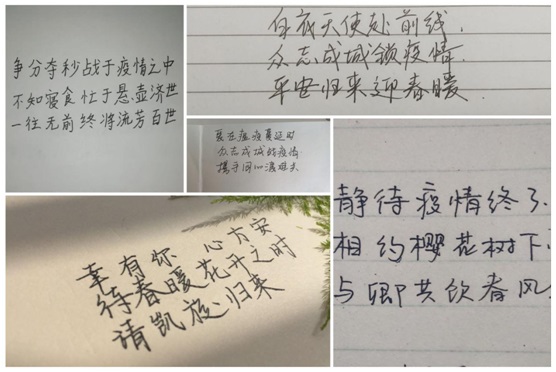 争分夺秒战于疫情之中
不知寝食忙于悬壶济世
一往无前终将流芳百世
白衣天使赴前线.
众志成城锁疫情.
平安归来迎春暖.
众志成城战疫情
携手同心渡难关
静待疫情终了
相约樱花树下
与卿共饮春风
幸有你 心方安
待春暖花开之时
请凯旋归来